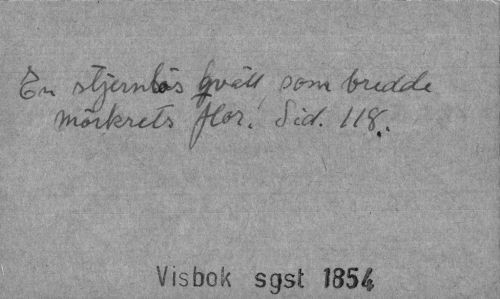 En stjernlös qväll som bredde
mörkrets flor. Sid. 118.
Visbok sgst 1854